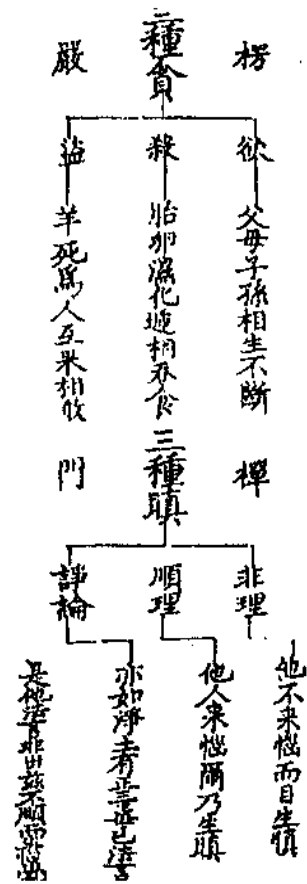 楞
三種貪
嚴
欲
殺
盜
父母子孫相生不斷
胎卵濕化遞相吞食
羊死爲人互來相
禪
三種瞋
門
非理
順理
諍論
他不來惱而自生瞋
他人來惱爾乃生瞋